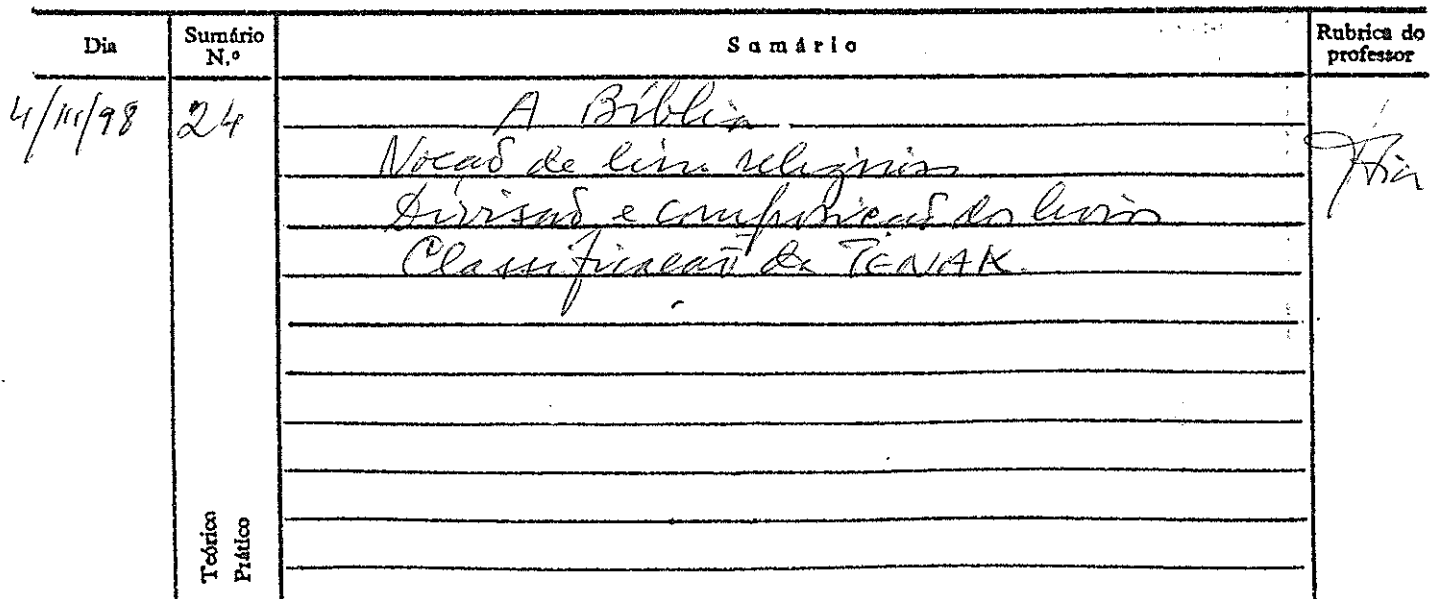 Dia Sumário N.º Sumário Rubrica do professor
4/III/98 24 A Bíblia
Noção de livro religioso
Divisão e composição dos livros
Classificação da TENAK.
Teórico
Prático